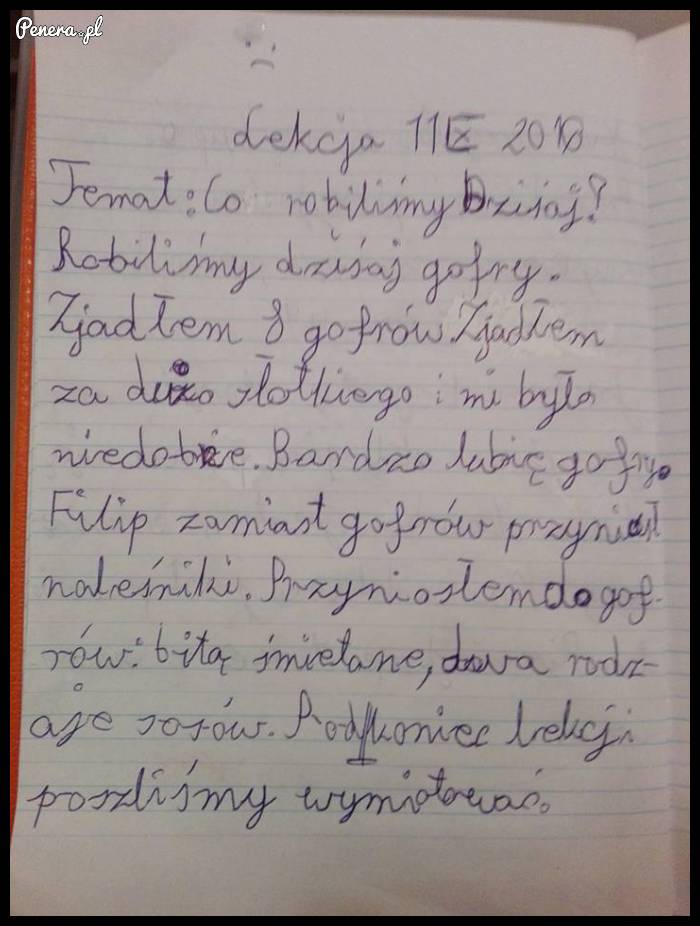 Penera.pl
Lekcja 11 IX 2018
Temat: Co robiliśmy Dzisiaj?
Robiliśmy dzisiaj gofry.
Zjadłem 8 gofrów. Zjadłem
za dużo słotkiego i mi było
niedobrze. Bardzo lubię gofry.
Filip zamiast gofrów przyniusł
naleśniki. Przyniosłem do gof-
rów: bitą śmietane, dwa rodz-
aje sosów. Pod koniec lekcji
poszliśmy wymiotować.